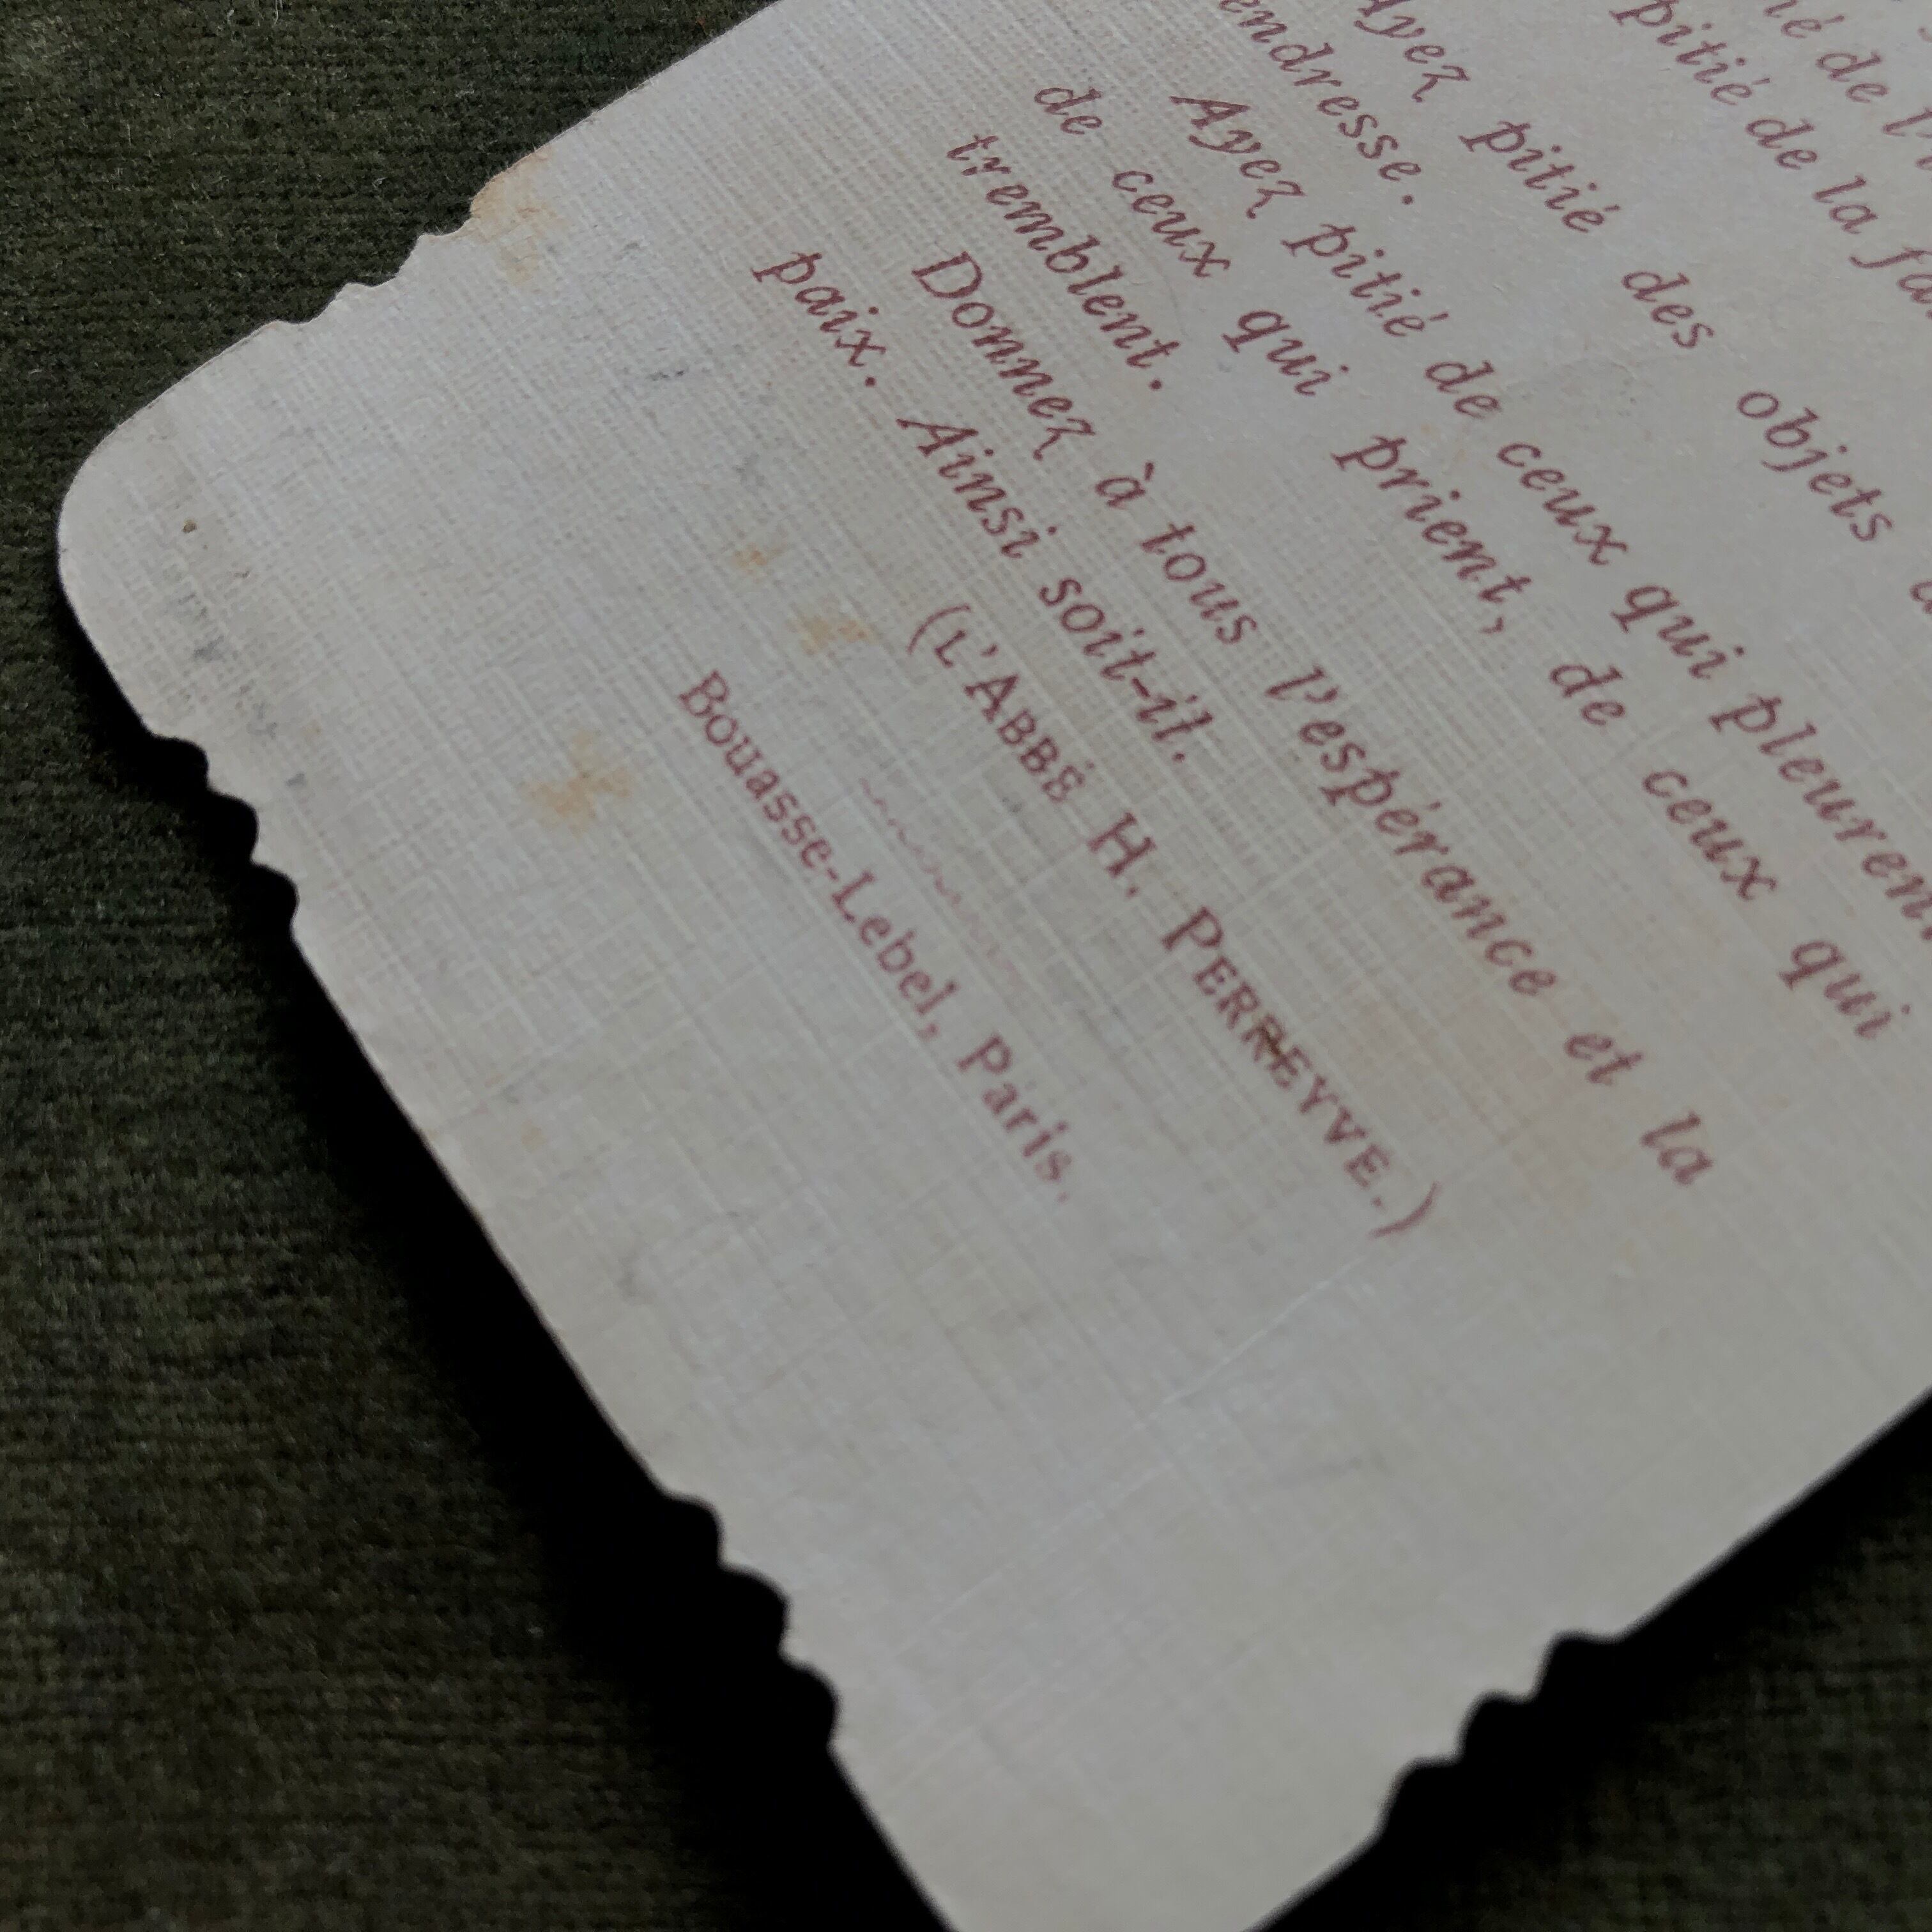 de
pitié de la
Ayez pitié des objets
endresse.
Ayez pitié de ceux qui pleurent
de ceux qui prient, de ceux qui
tremblent.
Donnez à tous l'espérance et la
paix. Ainsi soit-il.
(L'ABBÉ H. PERREYVE.)
Bouasse-Lebel, Paris.